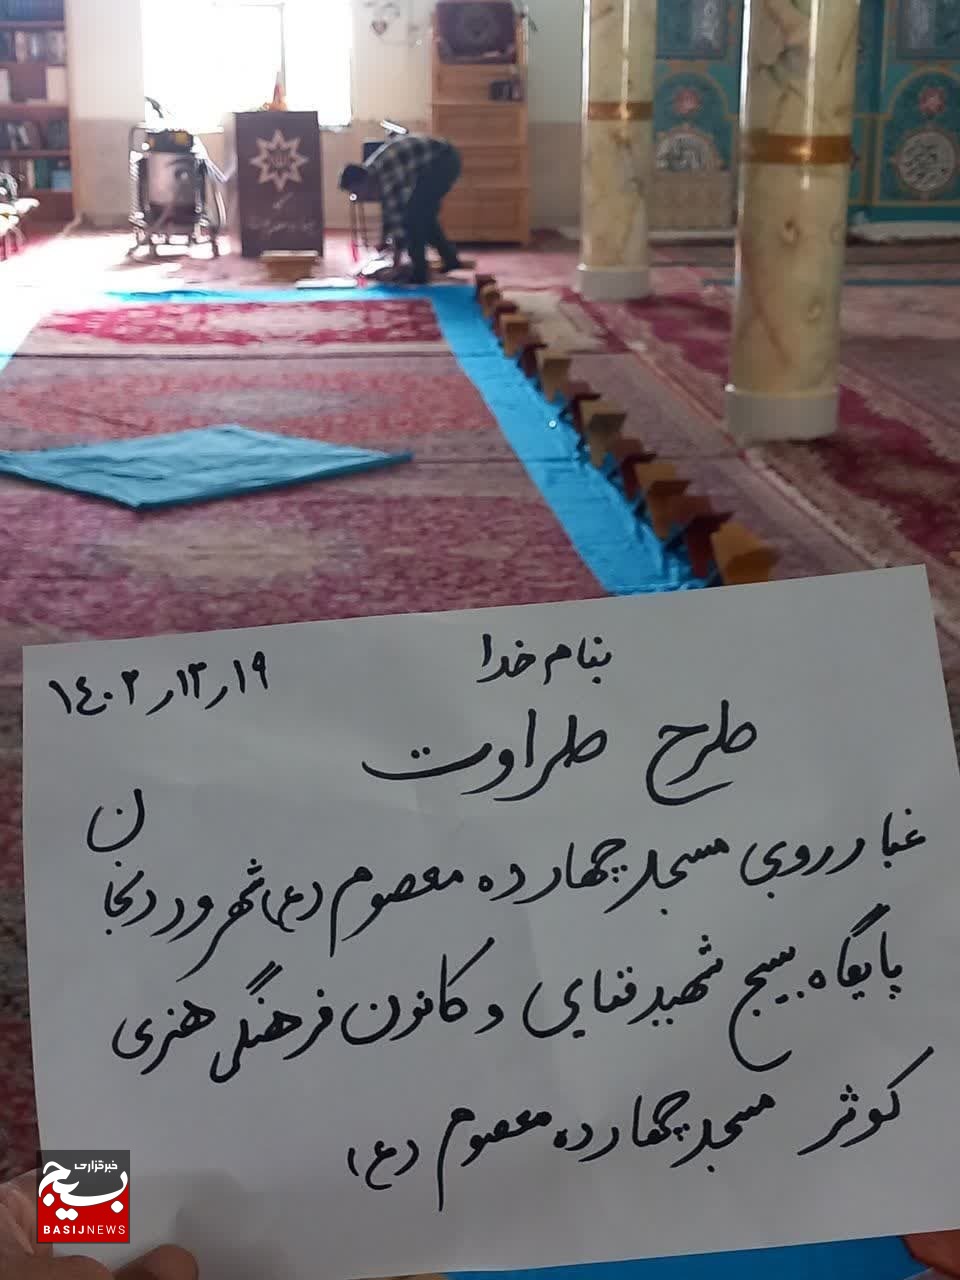 بنام خدا
۱۴۰۳ر۱۲ر۱۹
طرح طراوت
غبارروبی مسجد چهارده معصوم (ع) شهر وردنجان
پایگاه بسیج شهید فنایی و کانون فرهنگی هنری
کوثر مسجد چهارده معصوم (ع)
خبرگزاری
بسیج
BASIJNEWS